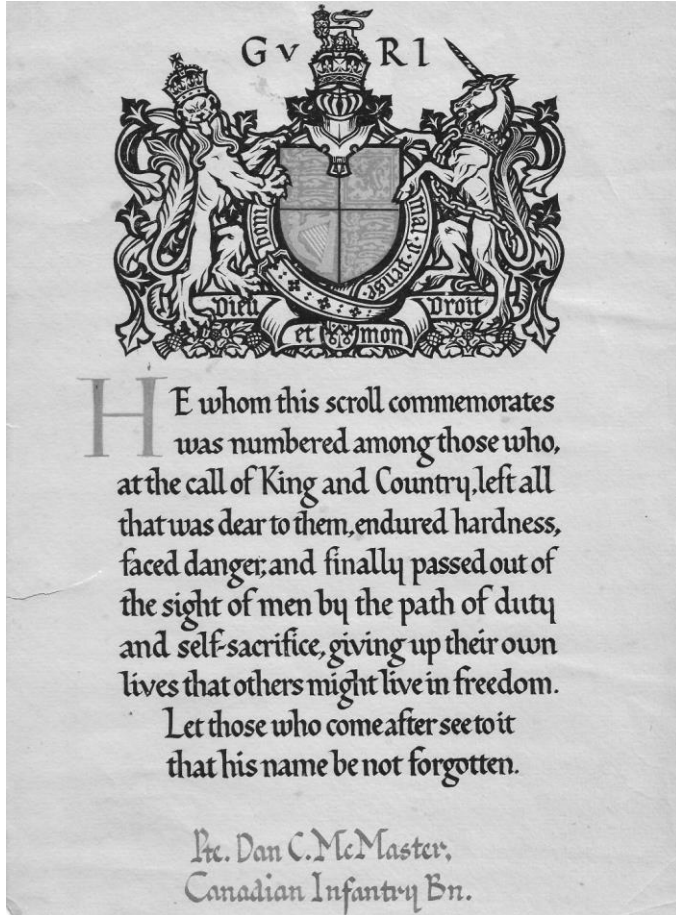 GV RI
honi
mal·y·pense
Dieu
Droit
et mon
HE whom this scroll commemorates
was numbered among those who,
at the call of King and Country, left all
that was dear to them, endured hardness,
faced danger, and finally passed out of
the sight of men by the path of duty
and self-sacrifice, giving up their own
lives that others might live in freedom.
Let those who come after see to it
that his name be not forgotten.
Pte. Dan C. McMaster,
Canadian Infantry Bn.